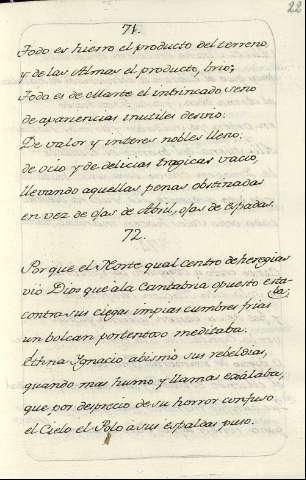 22
71.
Todo es hierro el producto del terreno,
y de las Almas el producto, brio;
Todo es de Marte el intrincado seno
de apariencias inutiles desvio.
De valor y interes nobles lleno.
de ocio y de delicias tragicas vacio,
llevando aquellas penas obstinadas
en vez de ojas de Abril, ojas de Espadas.
72.
Por que el Norte qual centro de heregias
vió Dios que a la Cantabria opuesto esta-
ba,
contra sus ciegas impias cumbres frias
un bolcan portentoso meditaba.
Ethna Ignacio abismó sus rebeldias,
quando mas humo y llamas exâlaba,
que por desprecio de su horror confuso
el Cielo el Polo a sus espaldas puso.